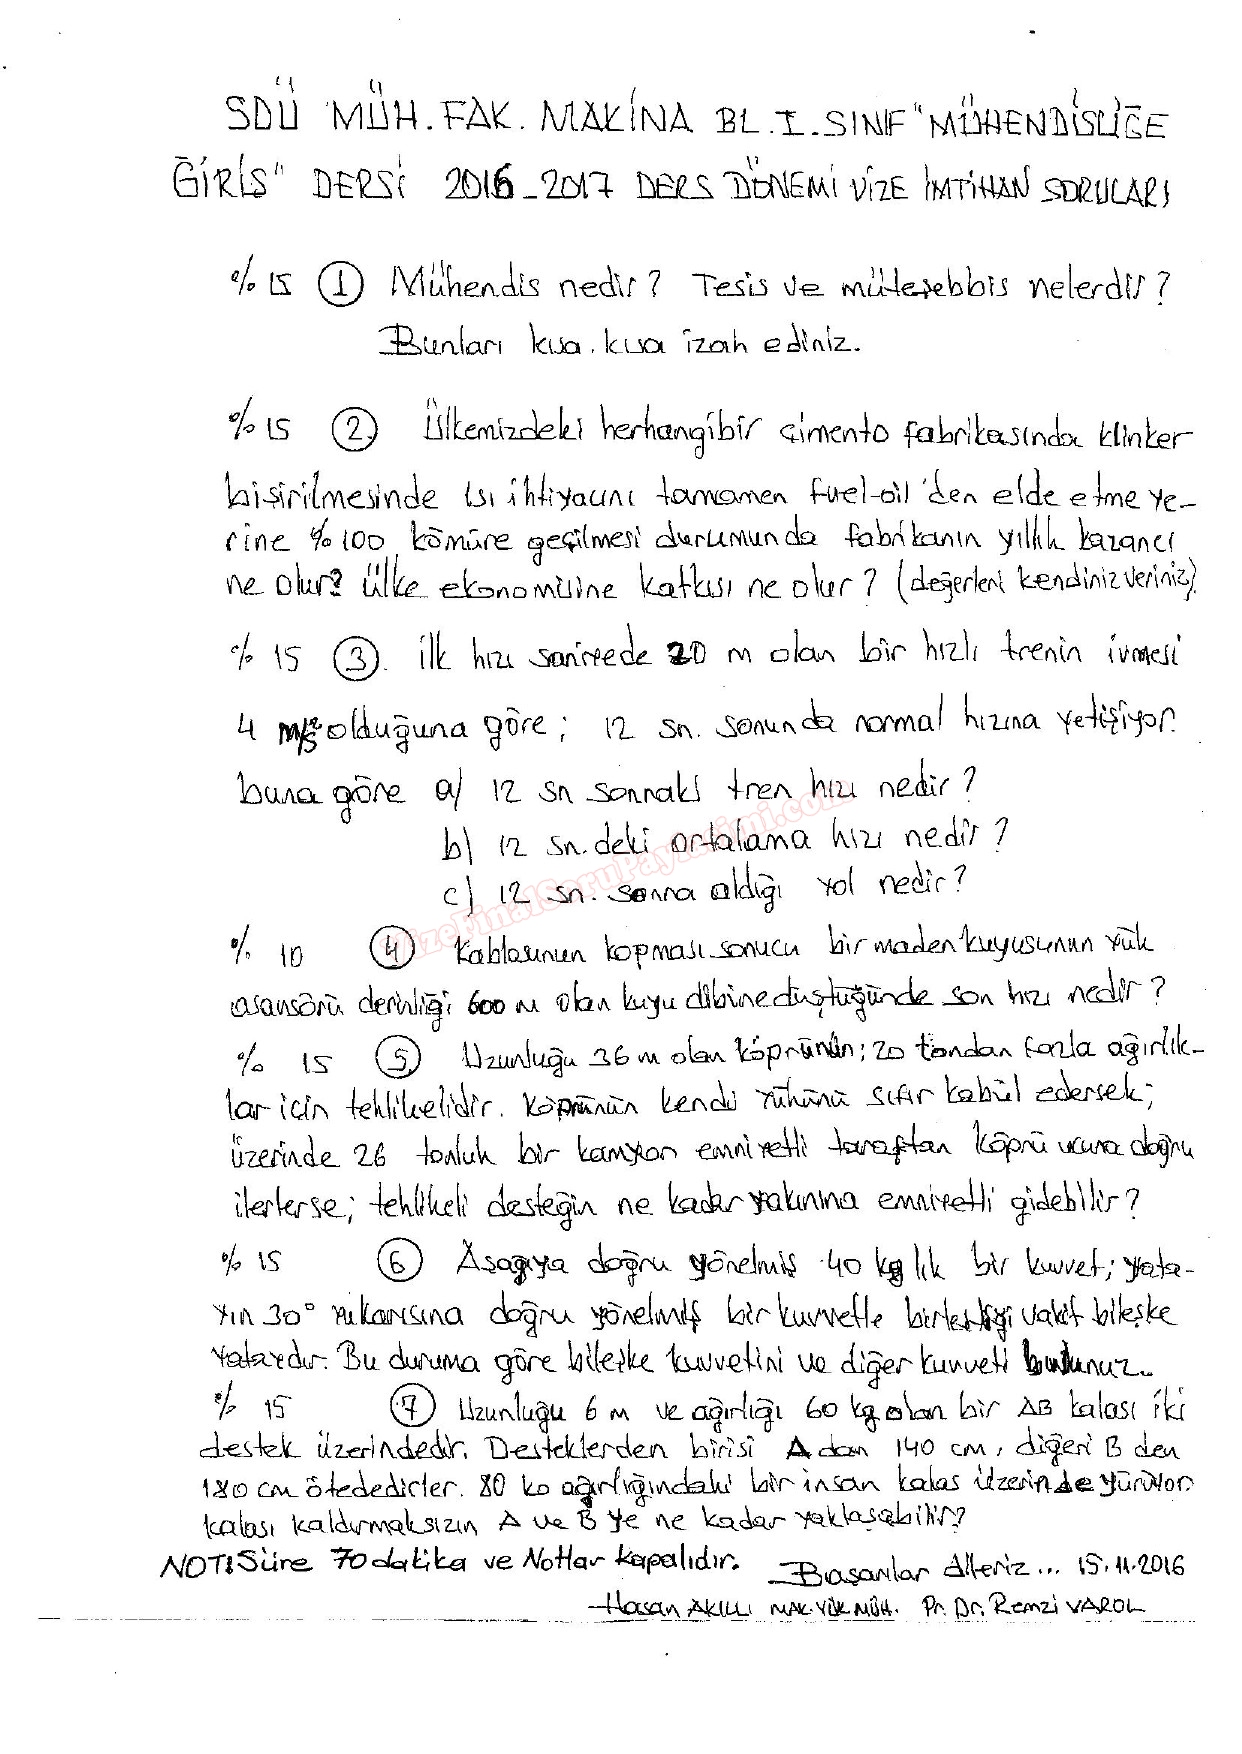 SDÜ MÜH. FAK. MAKİNA BL. I. SINIF "MÜHENDİSLİĞE
GİRİŞ" DERSİ 2016-2017 DERS DÖNEMİ VİZE İMTİHAN SORULARI
% 15 ① Mühendis nedir? Tesis ve müteşebbis nelerdir?
Bunları kısa. kısa izah ediniz.
% 15 ② Ülkemizdeki herhangibir çimento fabrikasında klinker
pişirilmesinde ısı ihtiyacını tamamen fuel-oil'den elde etme ye-
rine % 100 kömüre geçilmesi durumunda fabrikanın yıllık kazancı
ne olur? Ülke ekonomisine katkısı ne olur? (değerleri kendiniz veriniz)
% 15 ③. ilk hızı saniyede 20 m olan bir hızlı trenin ivmesi
4 m/s² olduğuna göre; 12 sn. sonunda normal hızına yetişiyor.
buna göre a) 12 sn sonraki tren hızı nedir?
b) 12 sn. deki ortalama hızı nedir?
c) 12 sn. sonra aldığı yol nedir?
VizeFinalSoruPaylasimi.com
% 10 ④ Kablosunun kopması sonucu bir maden kuyusunun yük
asansörü derinliği 600 m olan kuyu dibine düştüğünde son hızı nedir?
% 15 ⑤ Uzunluğu 36 m olan köprünün; 20 tondan fazla ağırlık-
lar için tehlikelidir. Köprünün kendi yükünü sıfır kabül edersek;
üzerinde 26 tonluk bir kamyon emniyetli taraftan köprü ucuna doğru
ilerlerse; tehlikeli desteğin ne kadar yakınına emniyetli gidebilir?
% 15 ⑥ Aşağıya doğru yönelmiş 40 kg lık bir kuvvet; yata-
yın 30° yukarısına doğru yönelmiş bir kuvvetle birleştiği vakit bileşke
yataydır. Bu duruma göre bileşke kuvvetini ve diğer kuvveti bulunuz.
% 15 ⑦ Uzunluğu 6 m ve ağırlığı 60 kg olan bir AB kalası iki
destek üzerindedir. Desteklerden birisi A dan 140 cm, diğeri B den
180 cm ötededirler. 80 kg ağırlığındaki bir insan kalas üzerinde yürüyor.
kalası kaldırmaksızın A ve B ye ne kadar yaklaşabilir?
NOT: Süre 70 dakika ve Notlar Kapalıdır. Başarılar dileriz... 15.11.2016
Hasan AKILLI MAK. YÜK MÜH. Pr. Dr. Remzi VAROL